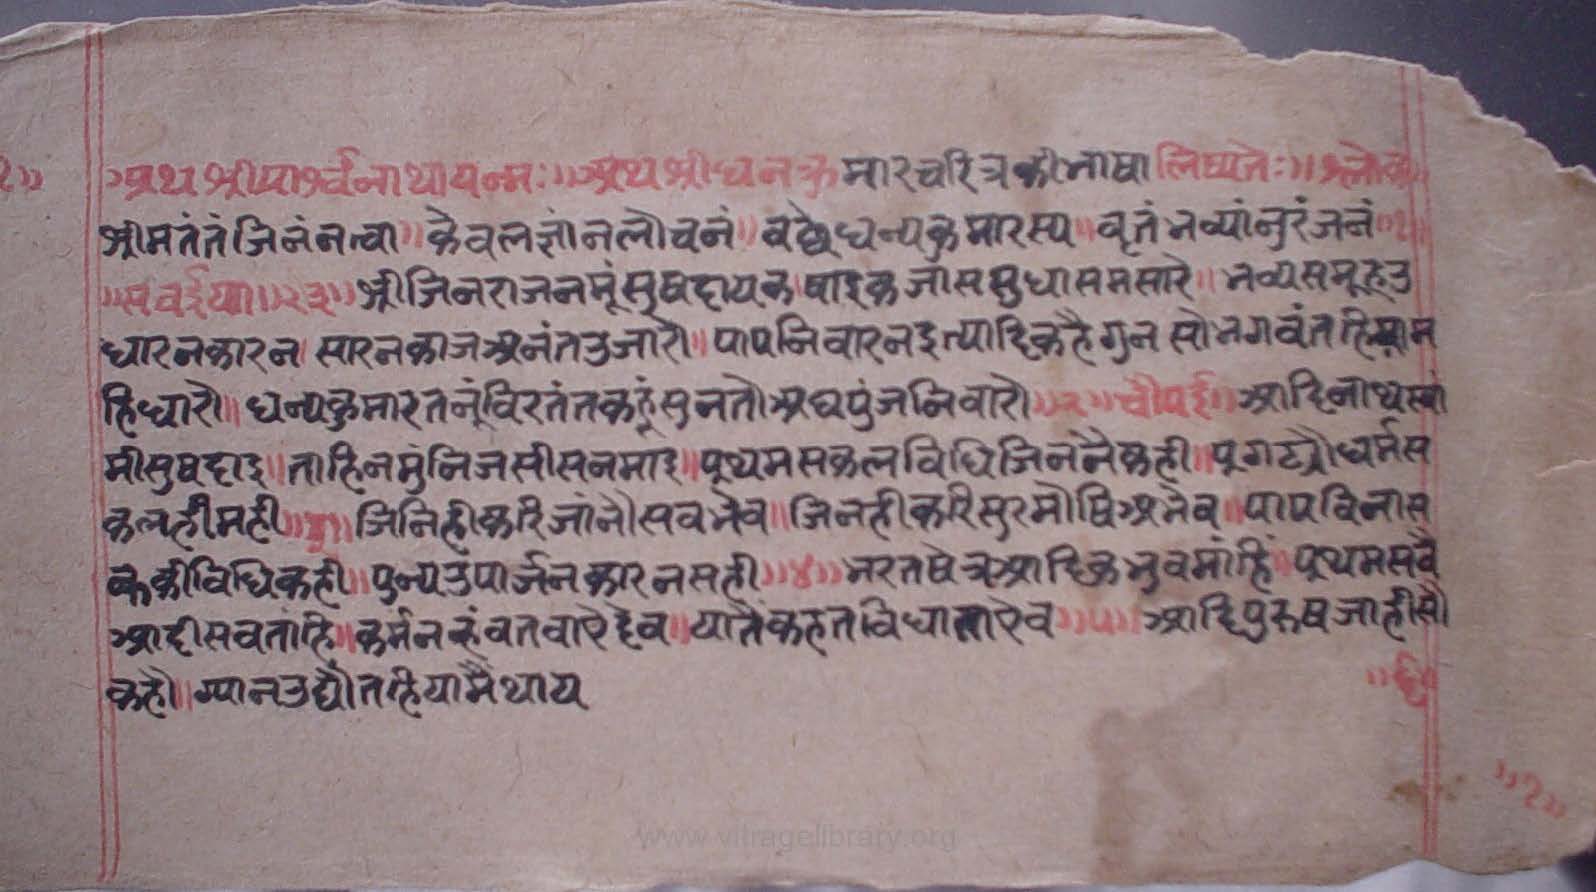 अथ श्रीपार्श्वनाथायनमः॥अथ श्रीधनकुमारचरित्रकीभाषा लिष्यतेः॥श्लोक
श्रीमतंतंजिनंनत्वा॥केवलज्ञांनलौचनं॥वक्ष्येधन्यकुमारस्य॥वृतंभव्यांनुरंजनं॥१॥
॥सवईया॥२३॥श्रीजिनराजनमूंसुषदायक।षाइकजाससुधासमसारे॥भव्यसमूहउ
धारनकारन।सारनकाजअनंतउजारौ॥पापनिवारनइत्यादिकहैगुनसोभगवंतहिया
हिधारो॥धन्यकुमारतनूंविरतंतकहूंसुनतोअघपुंजनिवारो॥२॥चौपई॥आदिनाथस्वां
मीसुषदाइ॥ताहिनमुंनिजसीसनमाइ॥प्रथमसकलविधिजिननैकही॥प्रगटयौधर्मस
कलहीमही॥३॥जिनिहीकरिजांनौसवभेव॥जिनहीकरिसुरमौषिअभेव॥पापविनास
ककीविधिकही॥पुन्यउपार्जनकारनसही॥४॥भरतषेत्रआदिकभुवमांहिं॥प्रथमसवै
आदीसवतांहि॥कर्मनरूंवतवाऐदेव॥यातैंकहतविधाताऐव॥५॥आदिपुरुषजाहीसौ
कहौ॥ग्यानउद्यौतहियामैथाय
॥६॥
॥१॥
www.vitragelibrary.org